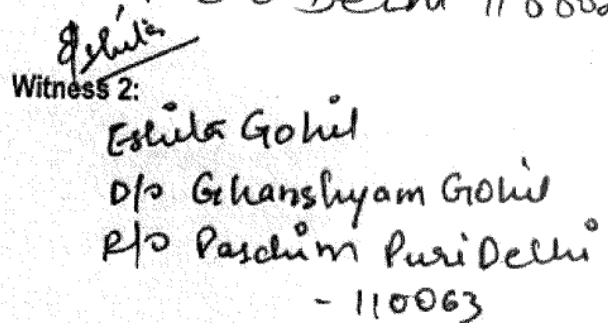 Delhi 110002
Eshita
Witness 2:
Eshita Gohil
D/o Ghanshyam Gohil
R/o Paschim Puri Delhi
- 110063